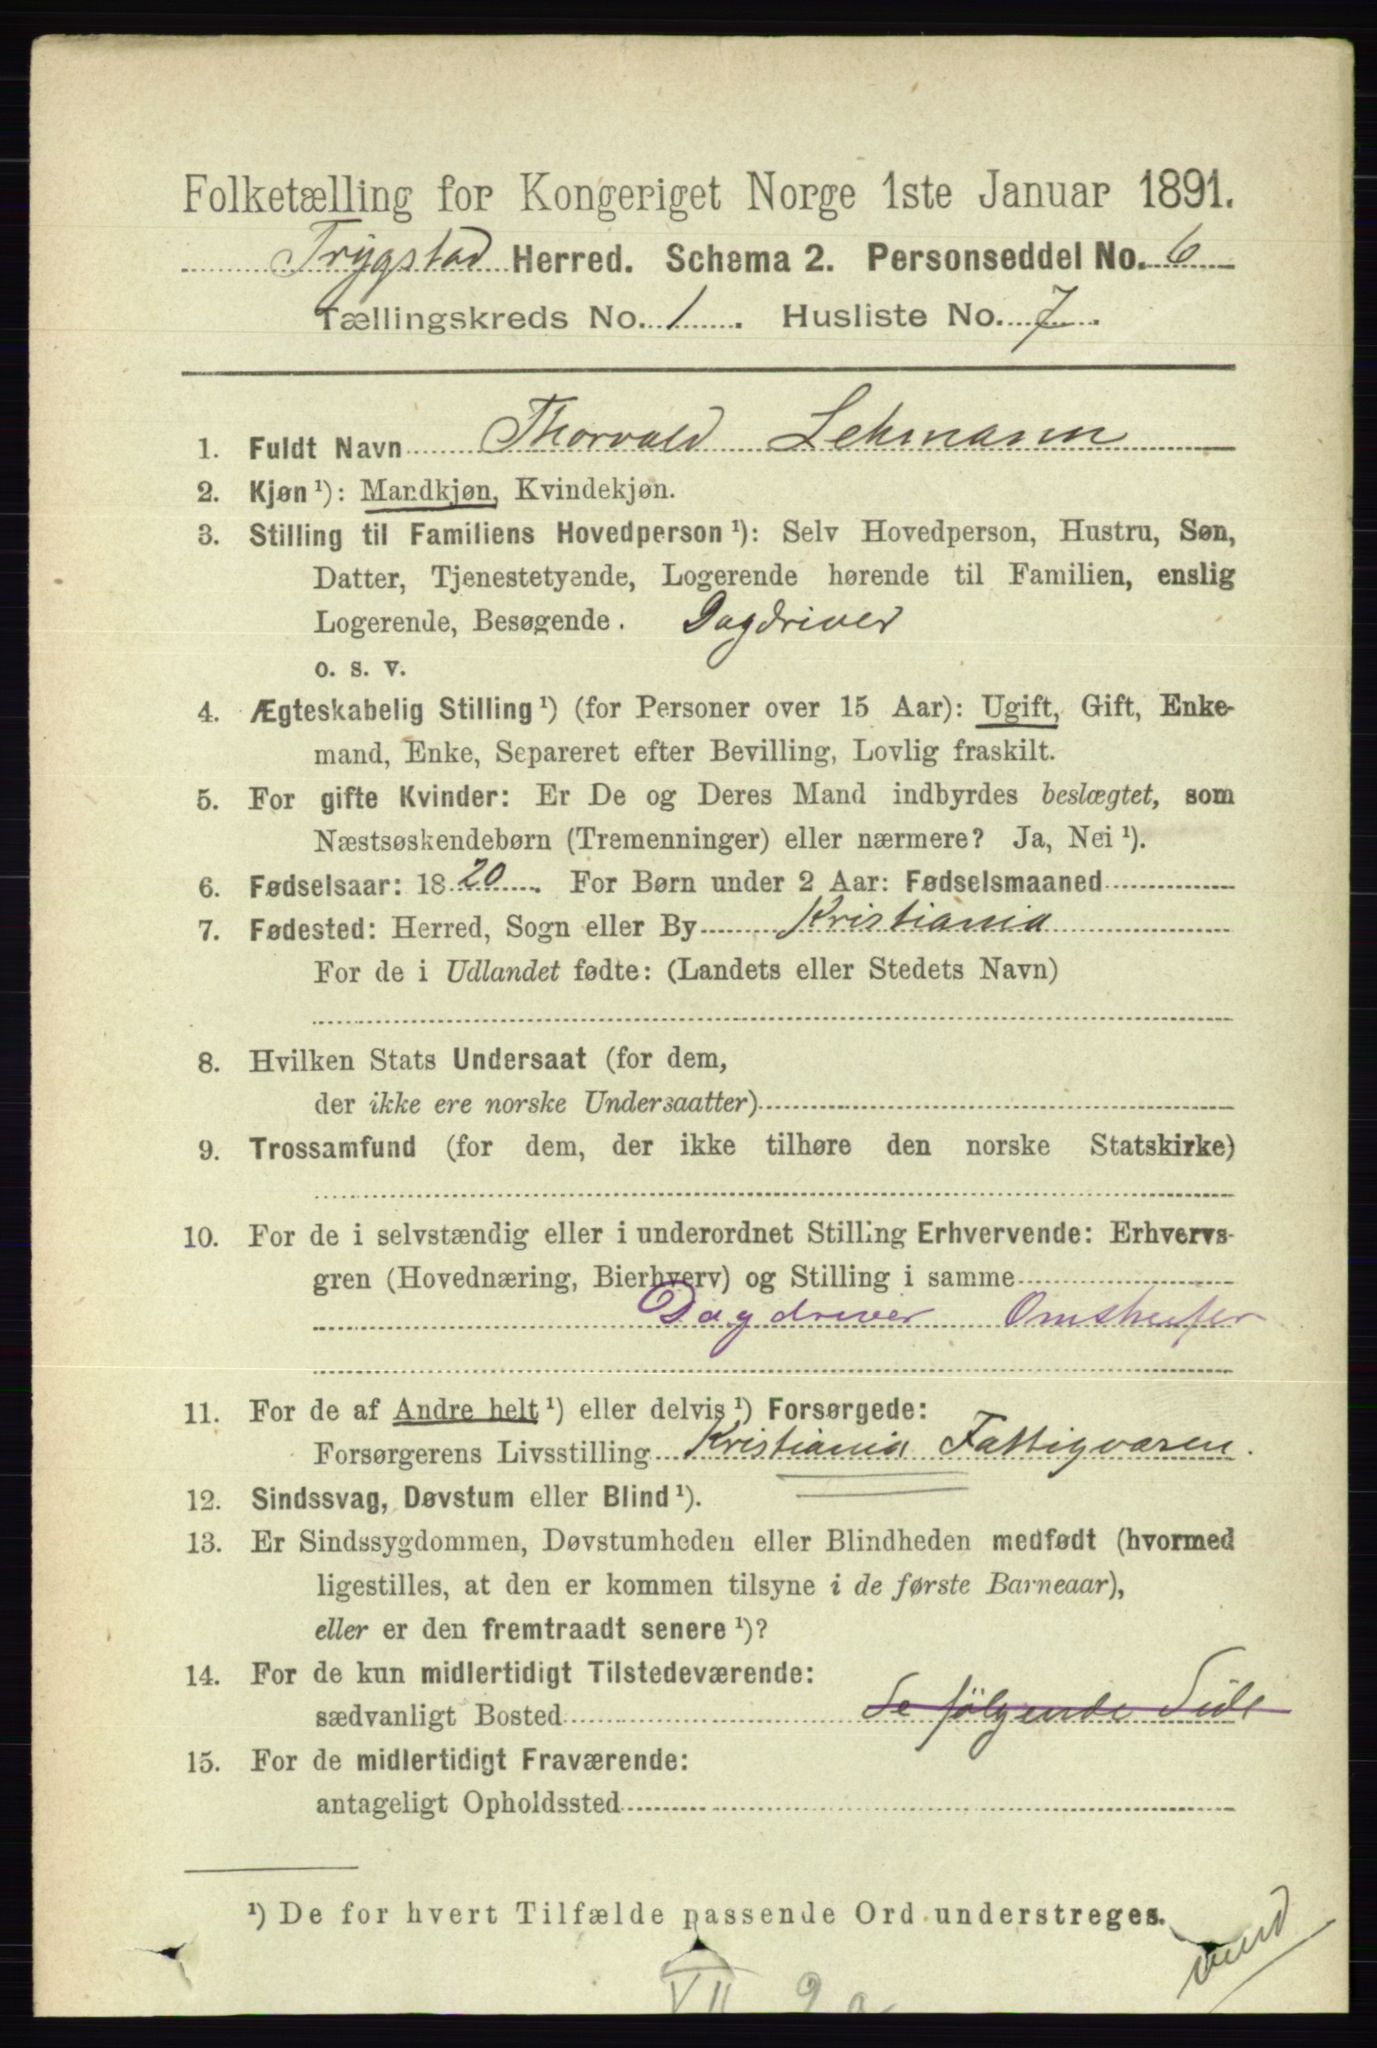 Folketælling for Kongeriget Norge 1ste Januar 1891.
Trygstad Herred. Schema 2. Personseddel No. 6
Tællingskreds No. 1. Husliste No. 7.
1. Fuldt Navn Thorvald Lehmann
2. Kjøn¹): Mandkjøn, Kvindekjøn.
3. Stilling til Familiens Hovedperson¹): Selv Hovedperson, Hustru, Søn,
Datter, Tjenestetyende, Logerende hørende til Familien, enslig
Logerende, Besøgende. Dagdriver
o. s. v.
4. Ægteskabelig Stilling¹) (for Personer over 15 Aar): Ugift, Gift, Enke-
mand, Enke, Separeret efter Bevilling, Lovlig fraskilt.
5. For gifte Kvinder: Er De og Deres Mand indbyrdes beslægtet, som
Næstsøskendebørn (Tremenninger) eller nærmere? Ja, Nei¹).
6. Fødselsaar: 1820. For Børn under 2 Aar: Fødselsmaaned
7. Fødested: Herred, Sogn eller By Kristiania
For de i Udlandet fødte: (Landets eller Stedets Navn)
8. Hvilken Stats Undersaat (for dem,
der ikke ere norske Undersaatter)
9. Trossamfund (for dem, der ikke tilhøre den norske Statskirke)
10. For de i selvstændig eller i underordnet Stilling Erhvervende: Erhvervs-
gren (Hovednæring, Bierhverv) og Stilling i samme
Dagdriver Omstreifer
11. For de af Andre helt¹) eller delvis¹) Forsørgede:
Forsørgerens Livsstilling Kristiania Fattigvæsen.
12. Sindssvag, Døvstum eller Blind¹).
13. Er Sindssygdommen, Døvstumheden eller Blindheden medfødt (hvormed
ligestilles, at den er kommen tilsyne i de første Barneaar),
eller er den fremtraadt senere¹)?
14. For de kun midlertidigt Tilstedeværende:
sædvanligt Bosted Se følgende Side
15. For de midlertidigt Fraværende:
antageligt Opholdssted
¹) De for hvert Tilfælde passende Ord understreges.
VII 9a